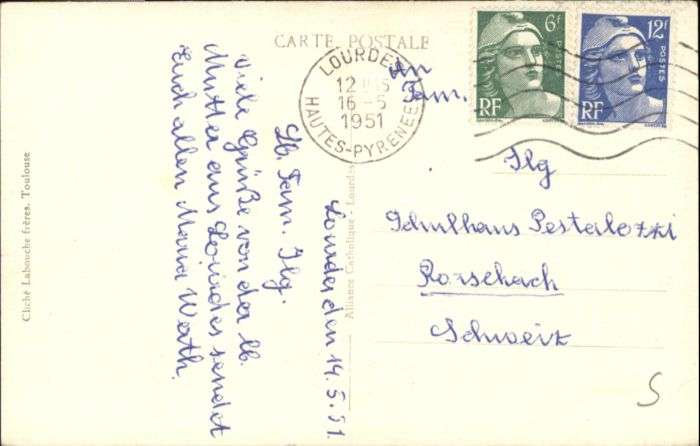 CARTE POSTALE
LOURDES
12H15
16-5
1951
HAUTES-PYRENEES
6F
POSTES
RF
12F
POSTES
RF
An
Fam.
Ilg
Schulhaus Pestalozzi
Rorschach
Schweiz
Lourdes den 14.5.51.
Lb. Fam. Ilg.
Viele Grüße von der lb.
Mutter aus Lourdes sendet
Euch allen Maria Werth.
Alliance Catholique - Lourdes
Cliché Labouche frères, Toulouse
S